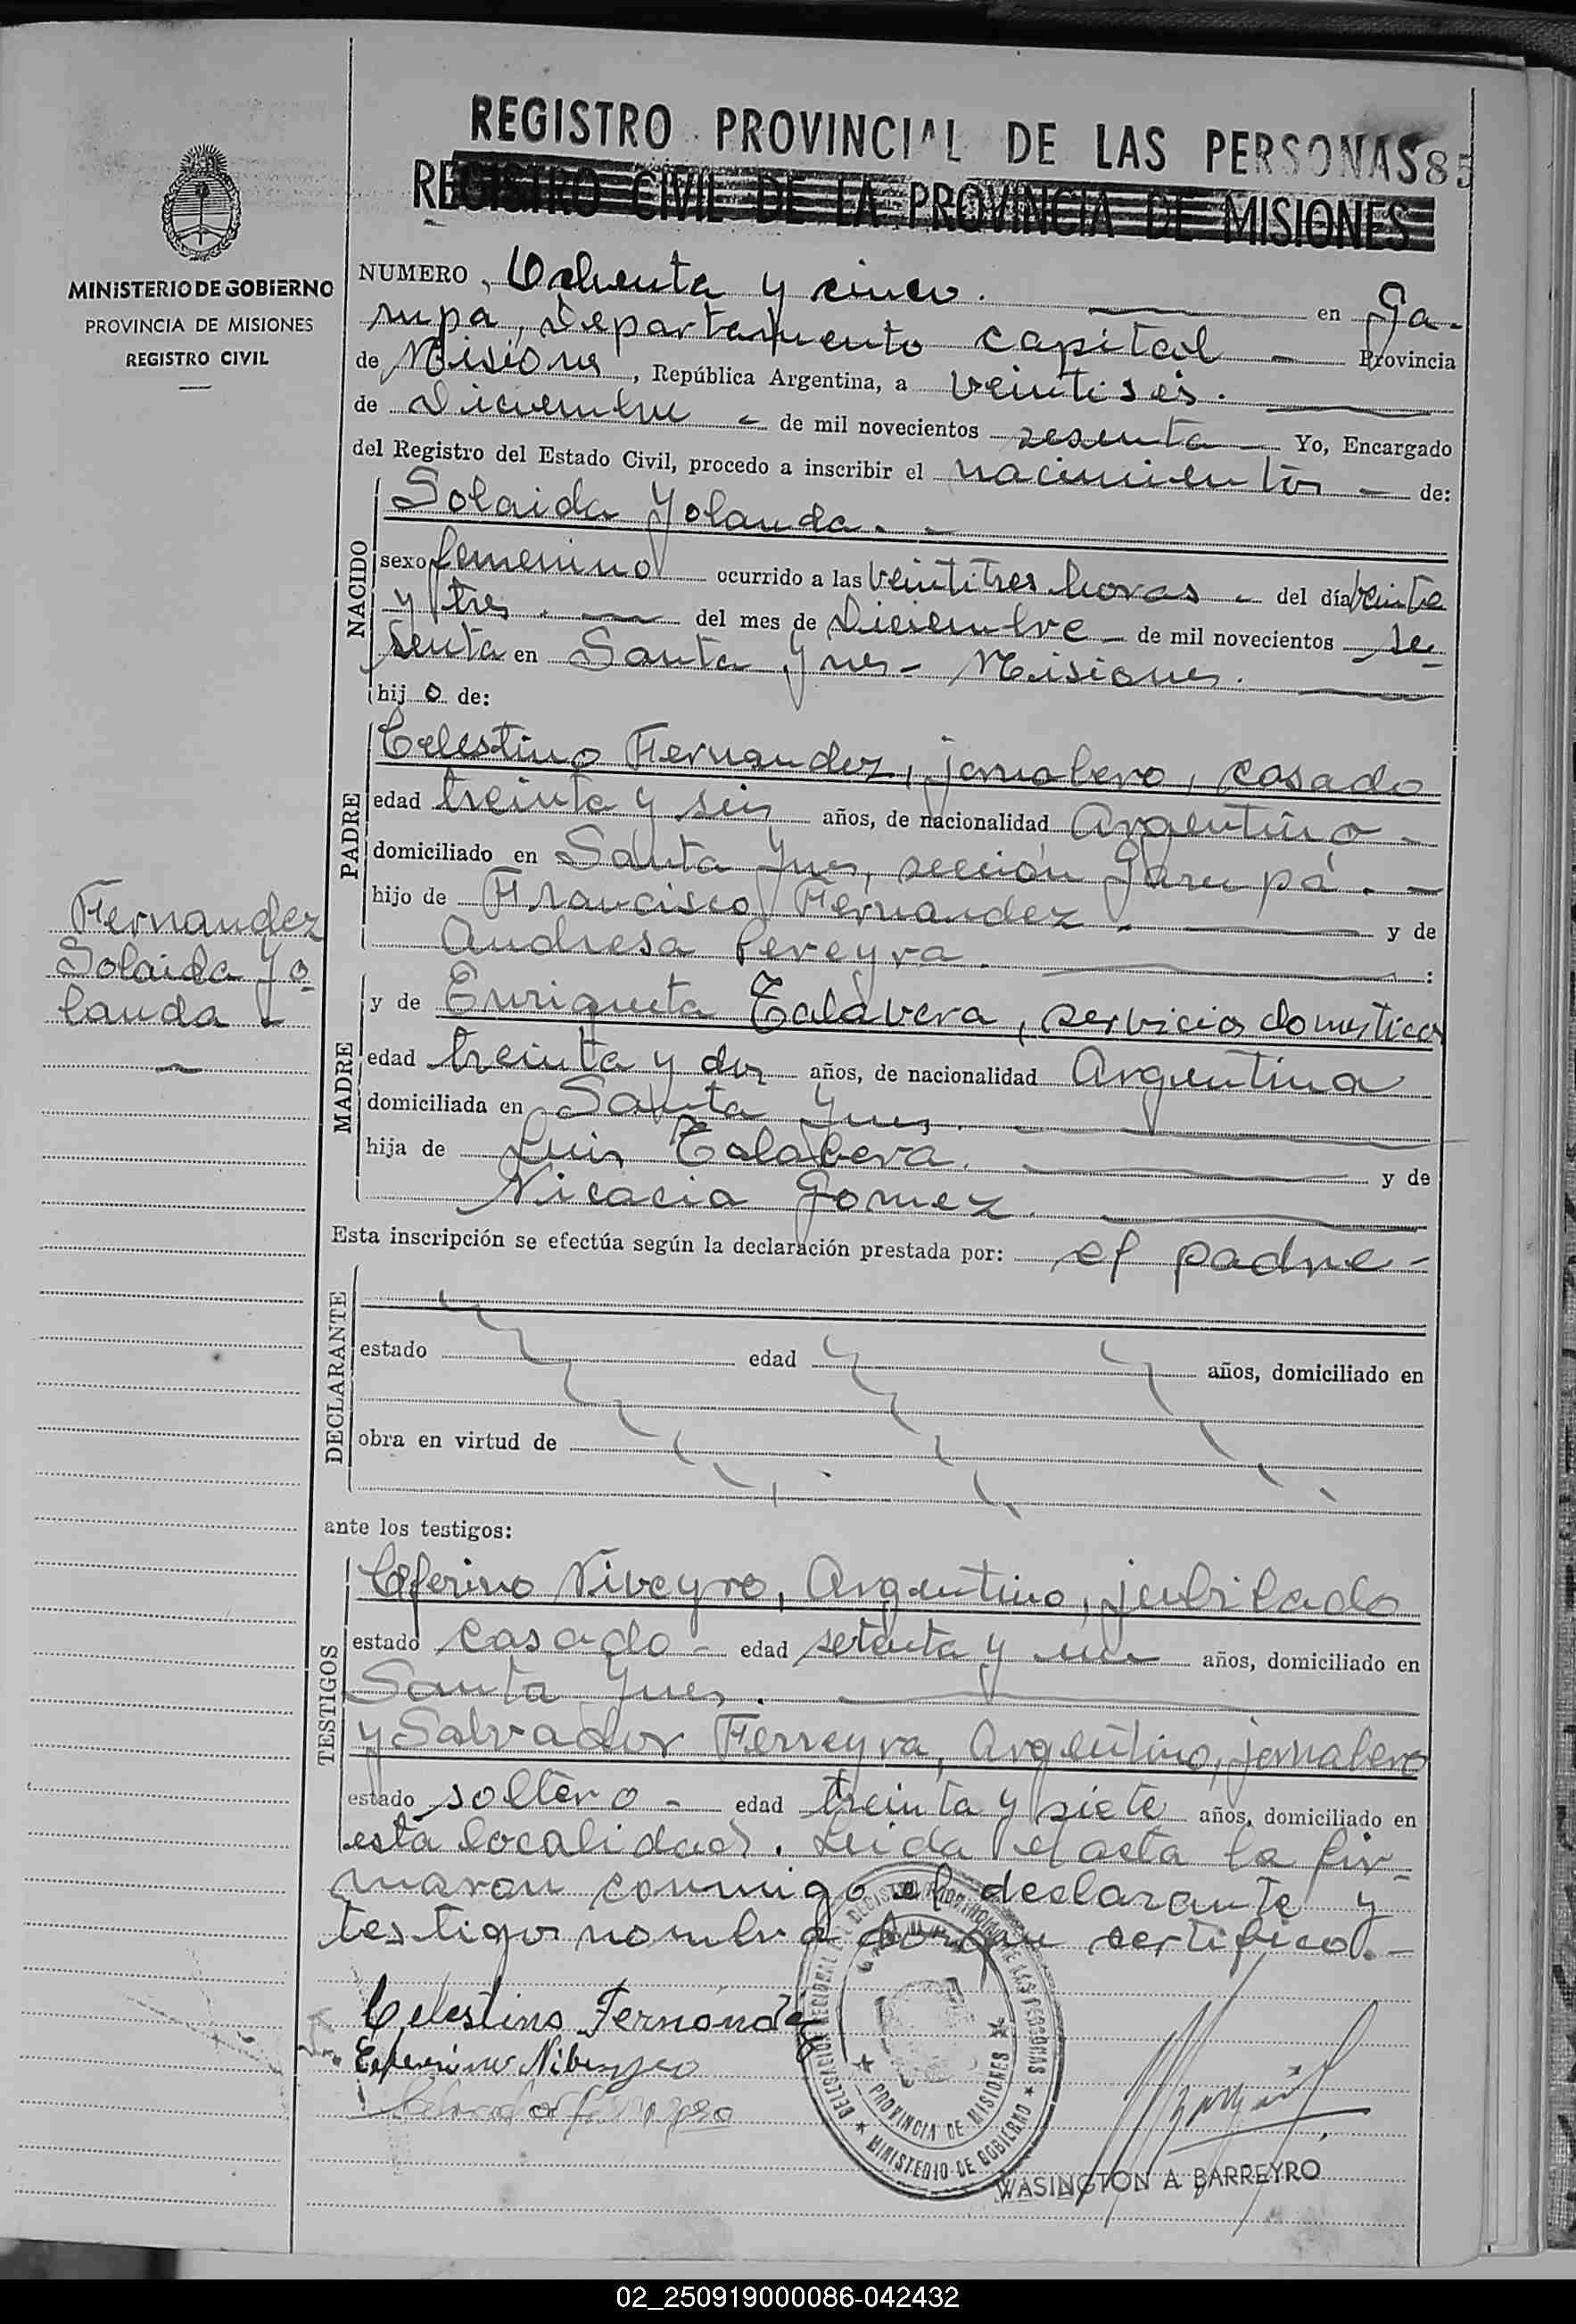 REGISTRO PROVINCIAL DE LAS PERSONAS 85
REGISTRO CIVIL DE LA PROVINCIA DE MISIONES
MINISTERIO DE GOBIERNO
PROVINCIA DE MISIONES
REGISTRO CIVIL
NUMERO, Ochenta y cinco. en Ga-
rupa, Departamento capital - Provincia
de Misiones, República Argentina, a veintiseis.
de Diciembre - de mil novecientos sesenta - Yo, Encargado
del Registro del Estado Civil, procedo a inscribir el nacimiento - de:
NACIDO
Solaida Yolanda. -
sexo femenino ocurrido a las veintitres horas - del día veinte
y tres. del mes de Diciembre - de mil novecientos se-
senta en Santa Ynes - Misiones.
hij o de:
PADRE
Celestino Fernandez, jornalero, casado
edad treinta y seis años, de nacionalidad Argentino -
domiciliado en Santa Ynes, sección Garupá. -
hijo de Francisco Fernandez. y de
Andresa Pereyra. :
Fernandez
Solaida Yo-
landa -
MADRE
y de Enriqueta Talavera, servicios domesticos
edad treinta y dos años, de nacionalidad Argentina
domiciliada en Santa Ynes.
hija de Luis Talabera. y de
Nicacia Gomez.
Esta inscripción se efectúa según la declaración prestada por: el padre -
DECLARANTE
estado edad años, domiciliado en
obra en virtud de
ante los testigos:
TESTIGOS
Ceferino Niveyro, Argentino, jubilado
estado casado - edad setenta y un años, domiciliado en
Santa Ynes.
y Salvador Ferreyra, Argentino, jornalero
estado soltero - edad treinta y siete años, domiciliado en
esta localidad. Leida el acta la fir-
maron conmigo el declarante y
testigos certifico. -
Celestino Fernández
Niveyro
PROVINCIA DE MISIONES
MINISTERIO DE GOBIERNO
WASINGTON A BARREYRO
02_250919000086-042432